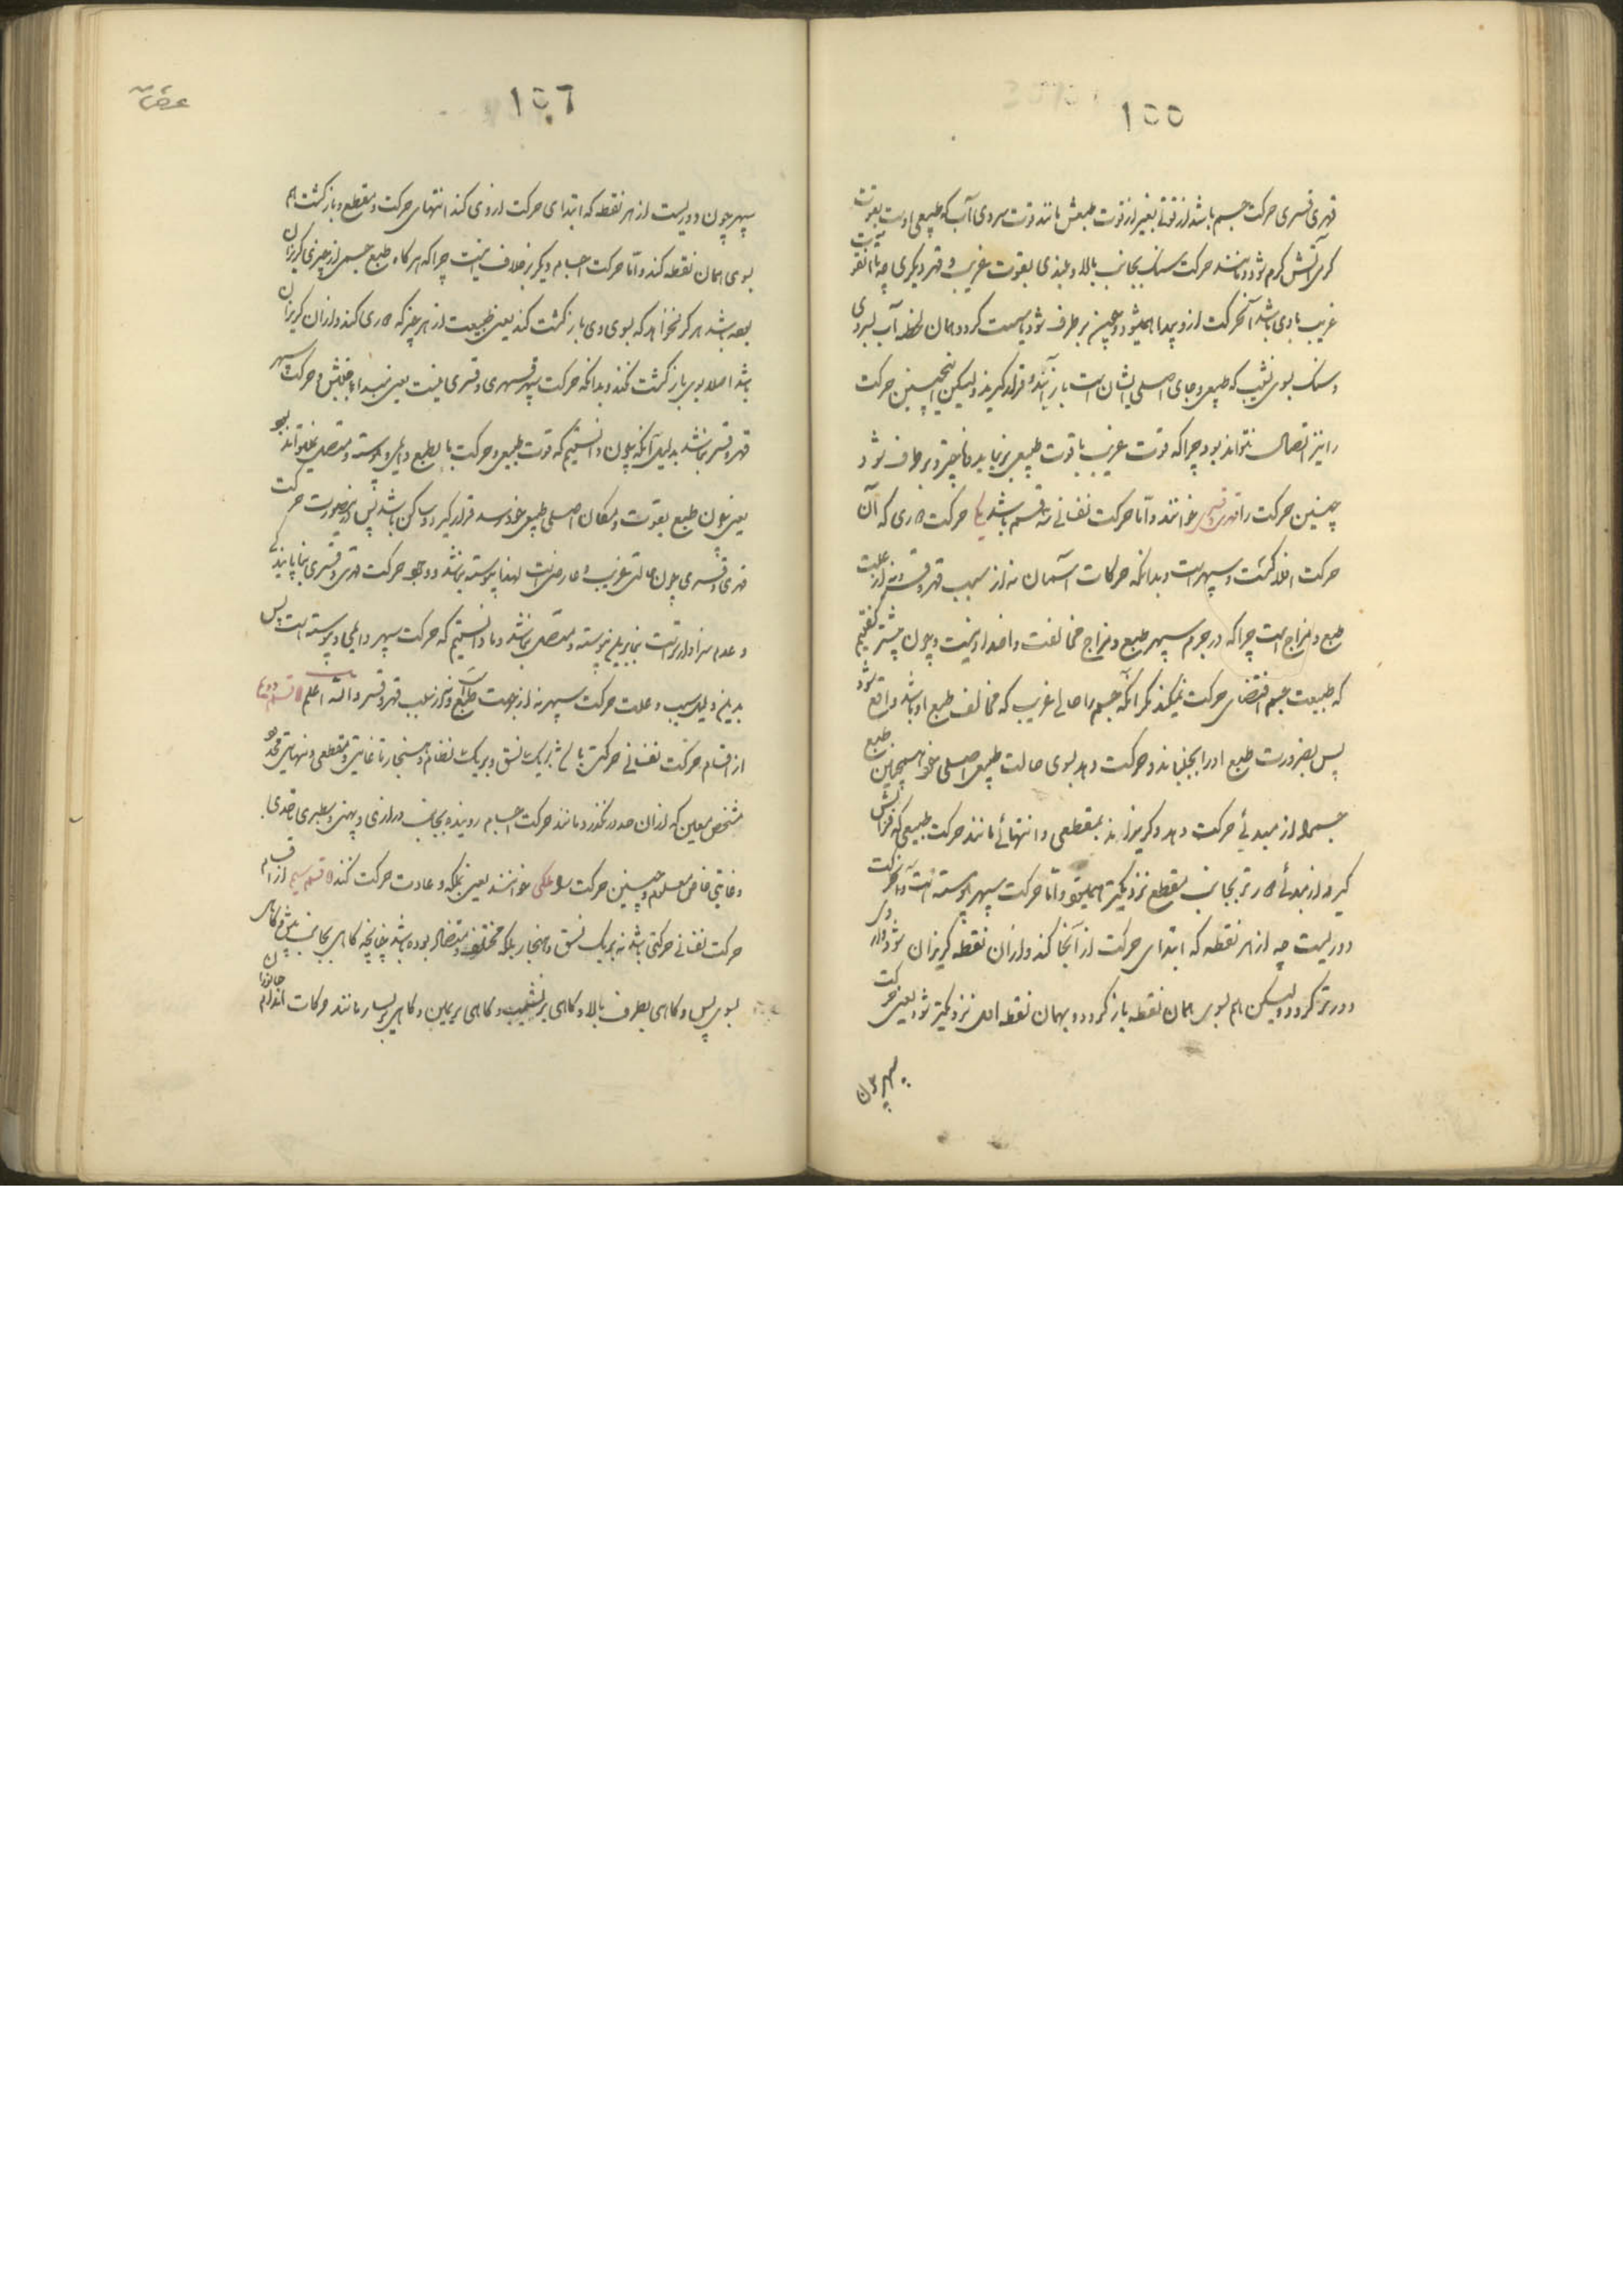 ١٥٥
قهری قسری حرکت جسم باشد از قوتی بغیر از قوت طبعش مانند قوت سردی آب که طبیعی اوست بقوت
گرمی آتش گرم شود و مانند حرکت سنگ بجانب بالا و بلندی بقوت غریب و قهر دیگری چه تا آن قوت
غریب با وی باشد آنحرکت ازو پیدا همیشود و چون برطرف شود سست گردد و همان لحظه آب بسردی
و سنگ بسوی نشیب که طبیعی و جای اصلی ایشان است باز آیند و قرار گیرند ولیکن اینچنین حرکت
را نیز اتصال نتواند بود چرا که قوت غریب با قوت طبیعی برنیاید و برطرف شود
چنین حرکت را قهری و قسری خوانند و اما حرکت نفسانی سه قسم باشد یکی حرکت که آن
حرکت افلاکست و سپهرست و بدانکه حرکات آسمان نه از سبب قهر و قسر و نه از علت
طبع و مزاج است چرا که در جرم سپهر طبع و مزاج مخالفت و اضداد نیست و چون پیشتر گفتیم
که طبیعت جسم اقتضای حرکت نمیکند مگر آنکه جسم را حالی غریب که مخالف طبع او باشد واقع شود
پس بضرورت طبع او را بجنباند و حرکت دهد بسوی حالت طبیعی اصلی خود همچنین طبع
جسم را از مبدئی حرکت دهد و گریزاند بمقطعی و انتهائی مانند حرکت طبیعی که
گیرد از مبدئی دورتر بجانب مقطع نزدیکتر و اما حرکت سپهر پیوسته است و آن حرکت
دوریست چه از هر نقطه که ابتدای حرکت از آنجا کند و ازان نقطه گریزان شود و از وی
دورتر گردد ولیکن هم بسوی همان نقطه باز گردد و بهمان نقطه اول نزدیکتر شود یعنی حرکت
سپهر چون
١٥٦
سپهر چون دوریست از هر نقطه که ابتدای حرکت ازوی کند انتهای حرکت و مقطع و بازگشت هم
بسوی همان نقطه کند و اما حرکت اجسام دیگر بر خلاف اینست چرا که هرگاه طبع جسمی از چیزی گریزان
بوده باشد هرگز نخواهد که بسوی وی بازگشت کند یعنی طبیعت از هر چیز که دوری کند و ازان گریزان
باشد اصلا بوی بازگشت نکند و بدانکه حرکت سپهر قهری و قسری نیست یعنی مبداء جنبش و حرکت سپهر
قهر و قسر نباشد بدلیل آنکه چون دانستیم که قوت طبیعی و حرکت بالطبع دایمی و پیوسته و متصل نتواند بود
یعنی چون طبع بقوت و مکان اصلی طبیعی خود رسد قرار گیرد و ساکن باشد پس درینصورت حرکت
قهری و قسری چون حالتی غریب و عارضی است لهذا پیوسته نباشد و وجود حرکت قهری و قسری ناپایندگی
و عدم سزاوارترست بنابرین پیوسته و متصل نباشد و ما دانستیم که حرکت سپهر دایمی و پیوسته است پس
بدین دلیل سبب و علت حرکت سپهر نه از جهت طبع است و نه از سبب قهر و قسر والله اعلم قسم دوم
از اقسام حرکت نفسانی حرکتی باشد بریک نسق و بریک نظام و هنجار تا غایتی و مقطعی و نهایتی محدود
مشخص معین که ازان حد درنگذرد مانند حرکت اجسام روینده بجانب درازی و پهنی و سطبری تا حدی
و غایتی خاص معلوم و چنین حرکت را ملکی خوانند یعنی بملکه و عادت حرکت کنند قسم سیم از اقسام
حرکت نفسانی حرکتی باشد نه بریک نسق و هنجار بلکه مختلف و متضاد بوده باشد چنانچه گاهی بجانب پیش و گاهی
بسوی پس و گاهی بطرف بالا و گاهی بر نشیب و گاهی بر یمین و گاهی بر یسار مانند حرکات اندام جانوران